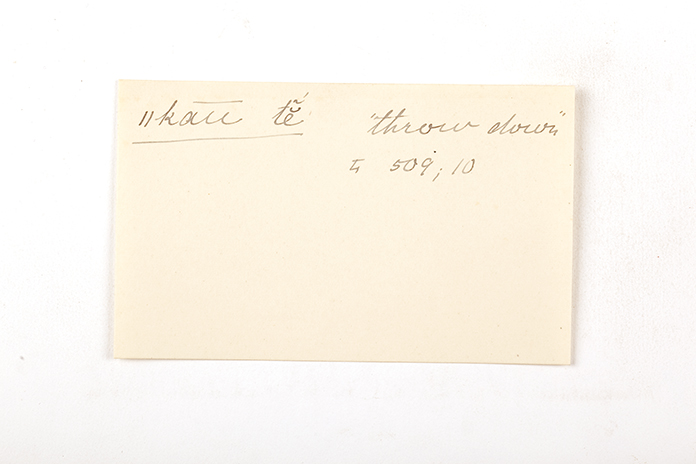 ǁkau tĕ́ "throw down"
ҕ 509, 10